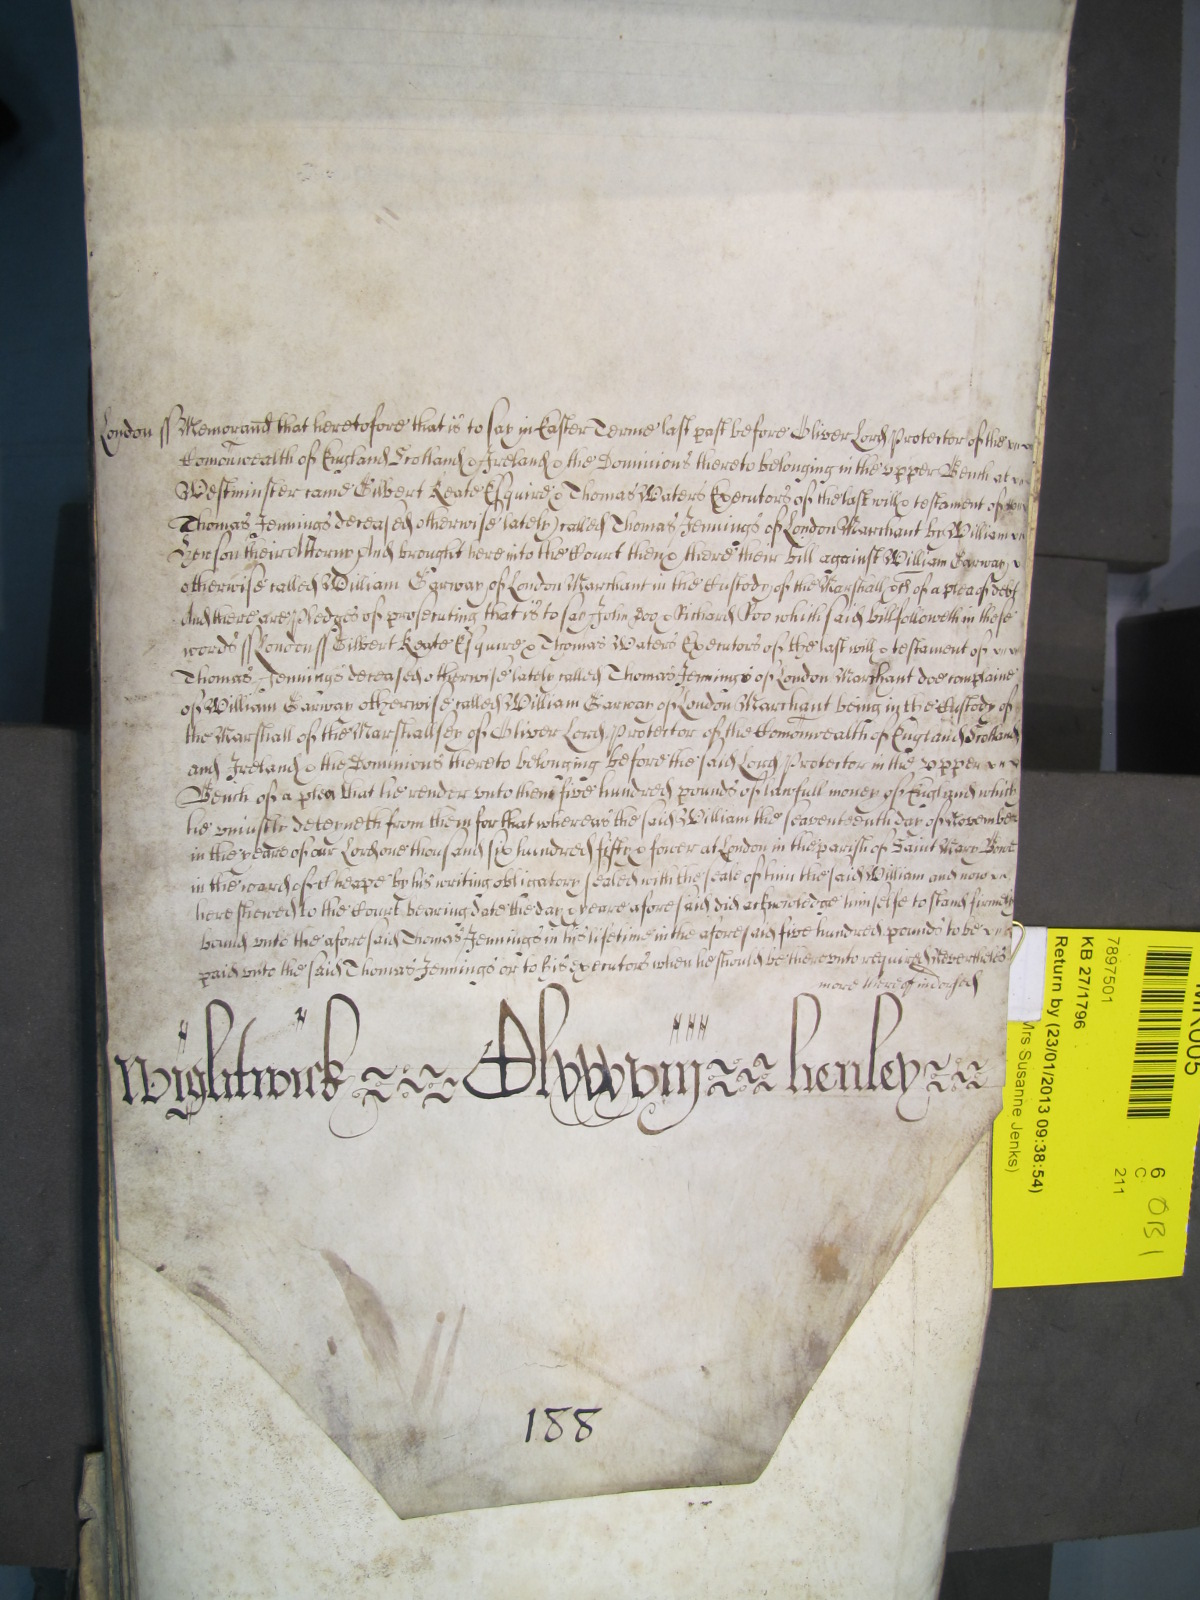 London ss Memorand that heretofore that is to say in Easter Terme last past before Oliver Lord Protector of the
Comonwealth of England Scotland & Ireland & the Dominions thereto belonging in the vpper Bench at
Westminster came Gilbert Keate Esquire & Thomas Waters Executors of the last will & testament of
Thomas Jennings deceased otherwise lately called Thomas Jennings of London Marchant by William
Hewson their Attorny And brought here into the Court then & there their bill against William Garway
otherwise called William Garway of London Marchant in the Custody of the Marshall &c of a plea of debt
And there are Pledges of prosecuting that is to say John Doo & Richard Roo which said bill followeth in these
words ss London ss Gilbert Keate Esquire & Thomas Waters Executors of the last will & testament of
Thomas Jennings deceased otherwise lately called Thomas Jennings of London Marchant doe complaine
of William Garway otherwise called William Garway of London Marchant being in the Custody of
the Marshall of the Marshallsey of Oliver Lord Protector of the Comonwealth of England Scotland
and Ireland & the Dominions thereto belonging before the said Lord Protector in the vpper
Bench of a plea that he render vnto them five hundred pounds of lawfull money of England which
he vniustly deteyneth from them for that whereas the said William the seaventeenth day of November
in the yeare of our Lord one thousand six hundred fifty & fower at London in the parish of Saint Mary Bowe
in the ward of Cheape by his writing obligatory sealed with the seale of him the said William and now
here shewed to the Court bearing date the day & yeare aforesaid did acknowledge himselfe to stand firmely
bound vnto the aforesaid Thomas Jennings in his lifetime in the aforesaid five hundred pounds to be
paid vnto the said Thomas Jennings or to his executors when he should be therevnto required Nevertheles
more thereof indorsed
Wightwick henley
188
7897501
KB 27/1796
Return by (23/01/2013 09:38:54)
Mrs Susanne Jenks)
6
C
211
OB 1